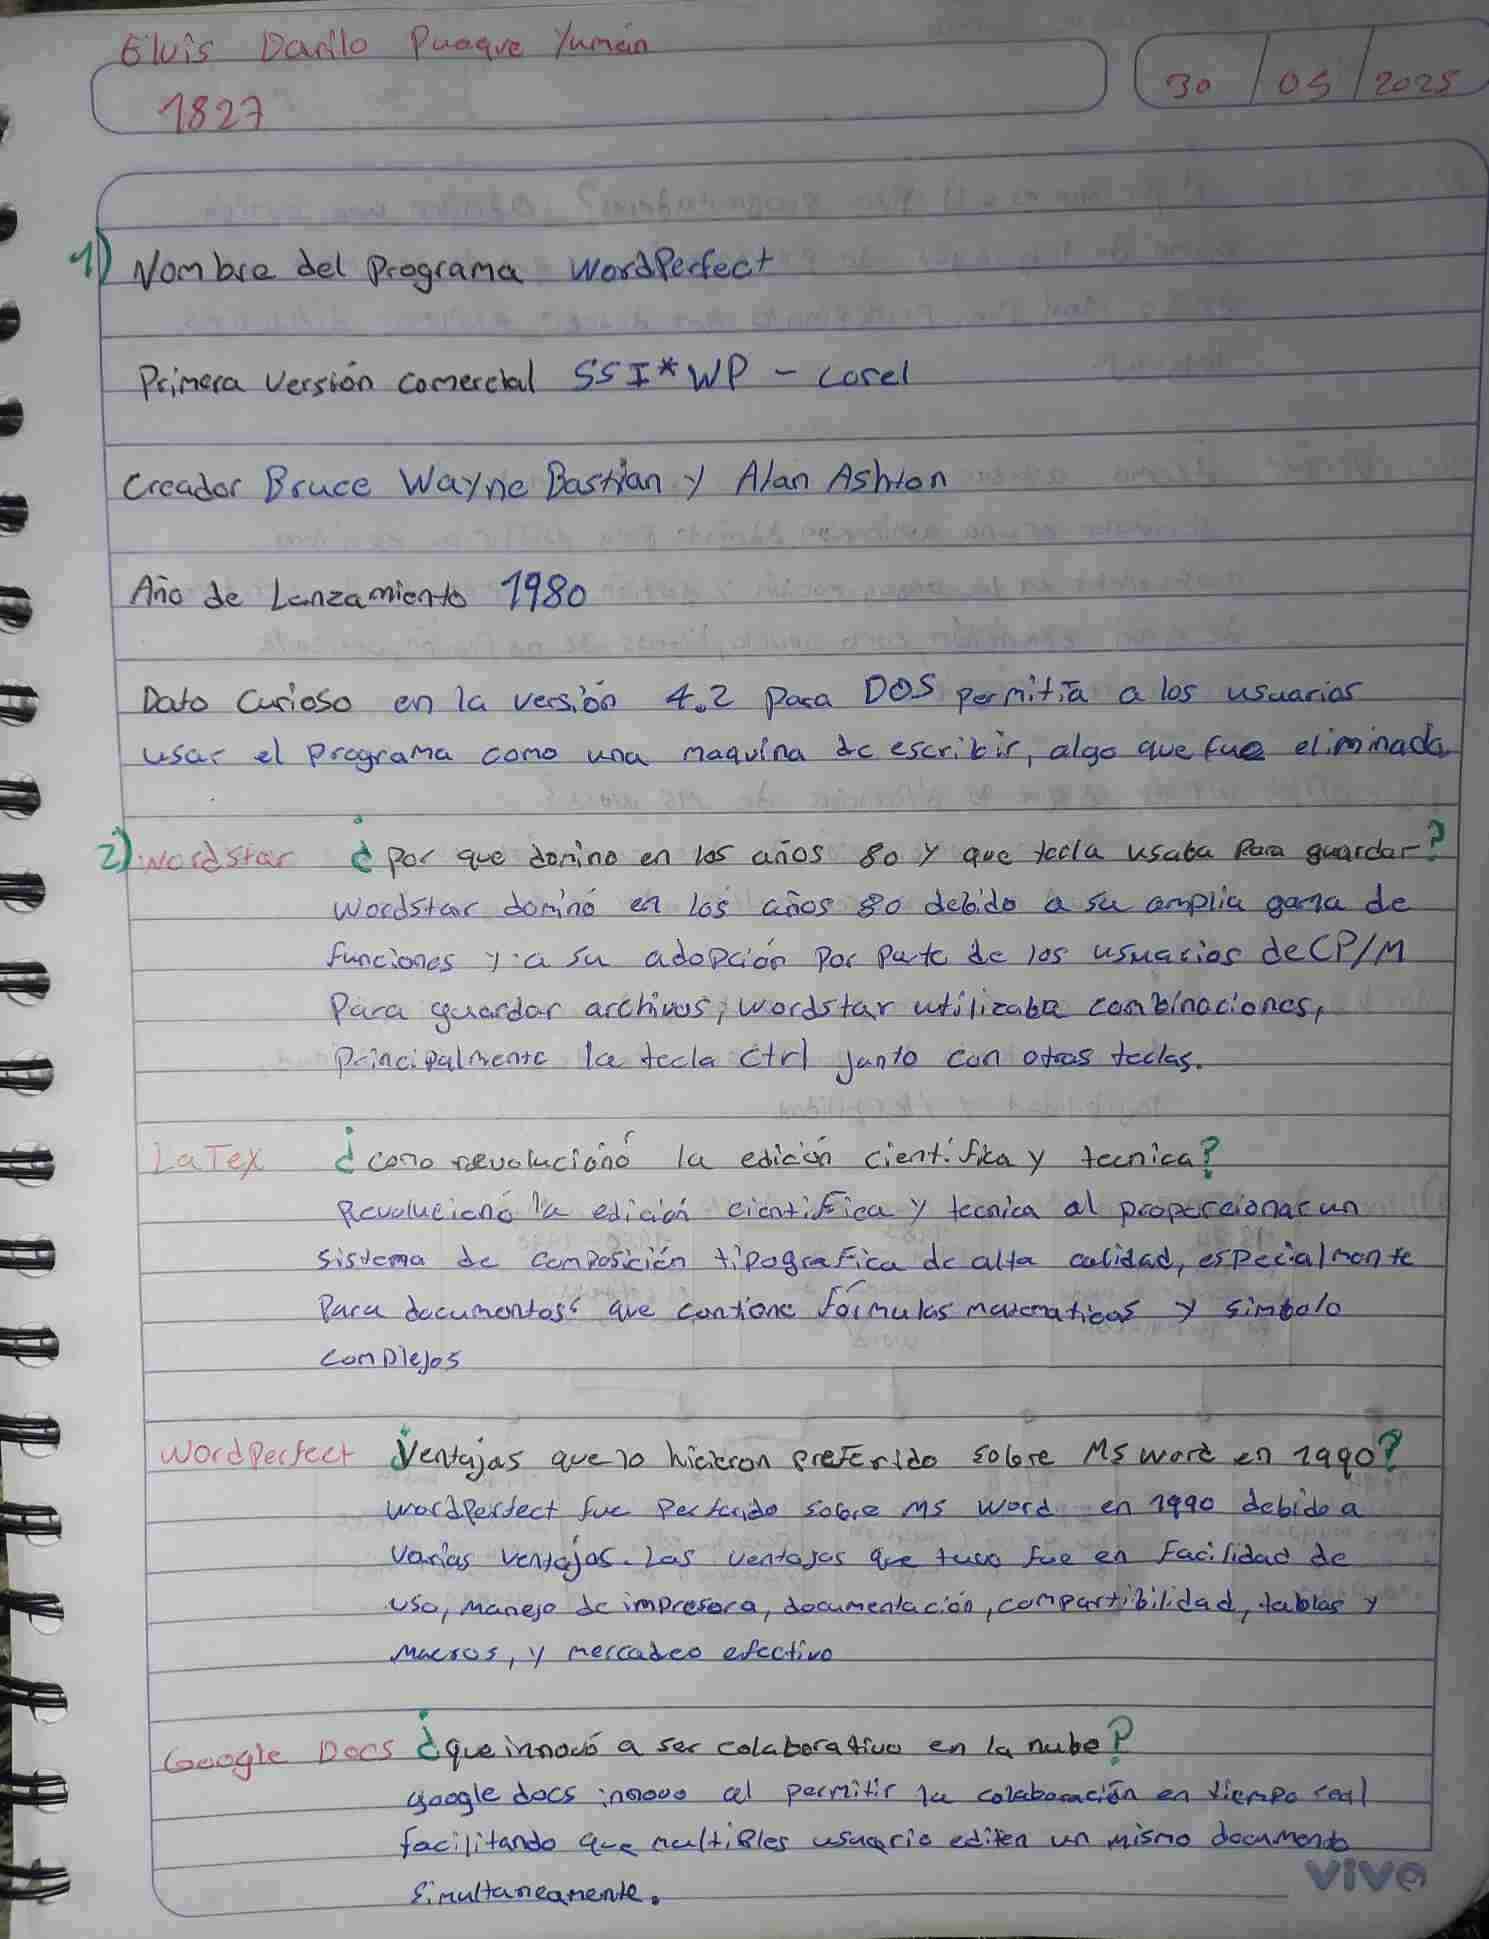 Elvis Danilo Puaque Yumán
1827
30 / 05 / 2025
1) Nombre del Programa WordPerfect
Primera Versión comercial SSI*WP - Corel
Creador Bruce Wayne Bastian y Alan Ashton
Año de Lanzamiento 1980
Dato Curioso en la versión 4.2 para DOS permitía a los usuarios
usar el programa como una maquina de escribir, algo que fue eliminada
2) Wordstar ¿Por que domino en los años 80 y que tecla usaba Para guardar?
Wordstar dominó en los años 80 debido a su amplia gama de
funciones y a su adopción Por Parte de los usuarios de CP/M
Para guardar archivos, wordstar utilizaba combinaciones,
Principalmente la tecla ctrl junto con otras teclas.
LaTex ¿como revolucionó la edición científica y tecnica?
Revolucionó la edición científica y tecnica al proporcionar un
sistema de composición tipografica de alta calidad, especialmente
Para documentos que contiene fórmulas matematicas y simbolo
complejos
WordPerfect ¿Ventajas que lo hicieron preferido sobre MS word en 1990?
WordPerfect fue Perferido sobre MS Word en 1990 debido a
varias ventajas. Las ventajas que tuvo fue en Facilidad de
uso, manejo de impresora, documentación, compartibilidad, tablas y
Macros, y mercadeo efectivo
Google Docs ¿que innovó a ser colaborativo en la nube?
google docs innovo al permitir la colaboración en tiempo real
facilitando que multiples usuario editen un mismo documento
simultaneamente.
vivo